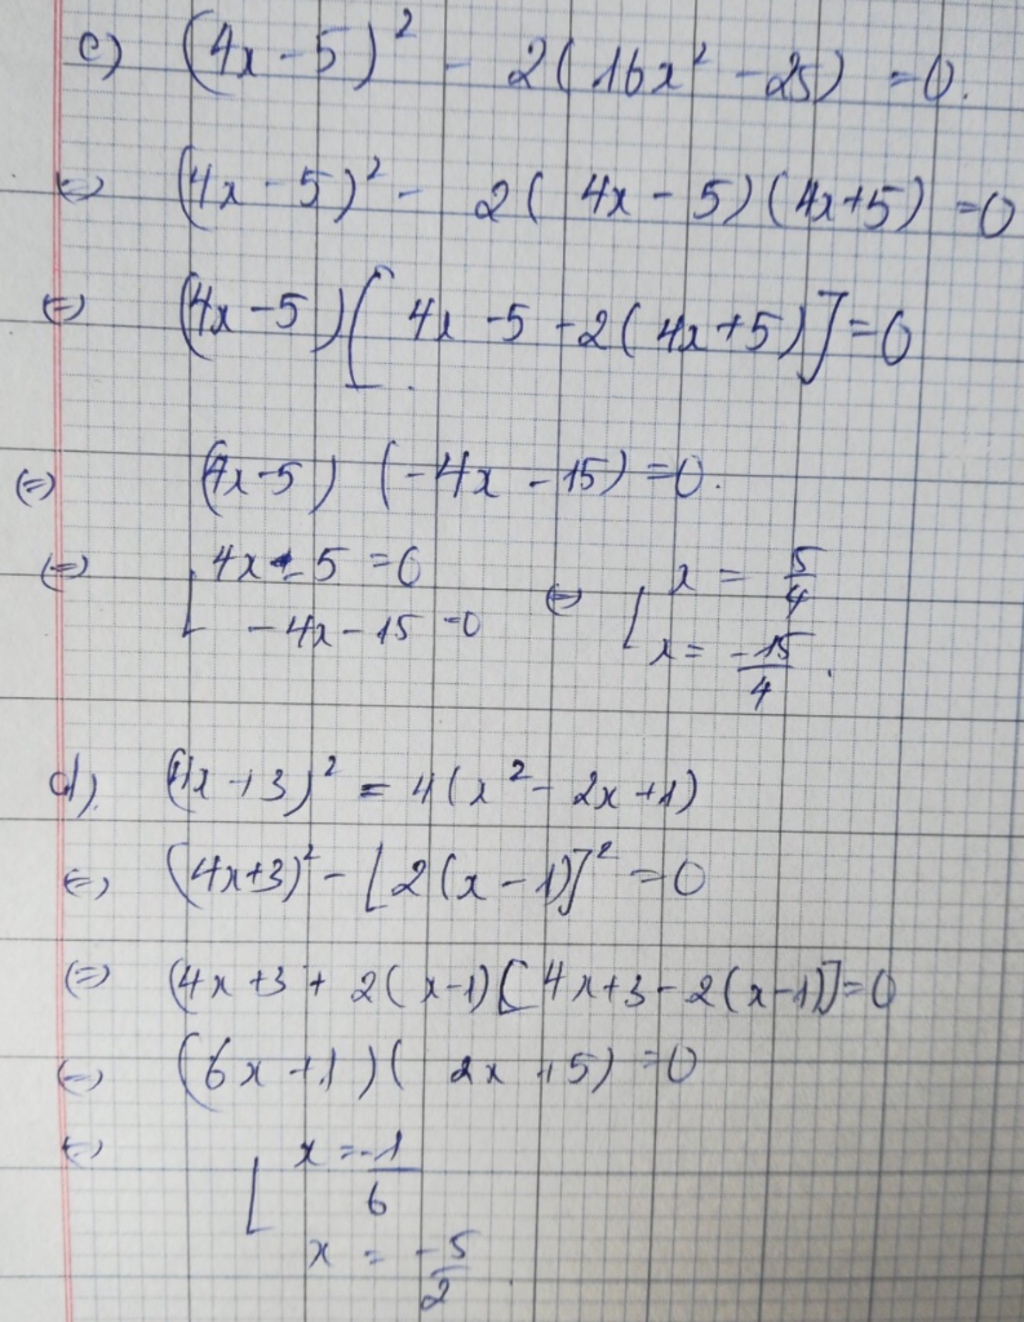 c) (4x - 5)² - 2(16x² - 25) = 0.
(=) (4x - 5)² - 2(4x - 5)(4x+5) = 0
(=) (4x - 5)[4x - 5 - 2(4x+5)] = 0
(=) (4x - 5) (-4x - 15) = 0.
(=) [ 4x - 5 = 0 (=) [ x = 5/4
-4x - 15 = 0 x = -15/4.
d). (4x + 3)² = 4(x² - 2x + 1)
(=) (4x+3)² - [2(x - 1)]² = 0
(=) (4x + 3 + 2(x-1)[4x+3 - 2(x-1)] = 0
(=) (6x + 1)(2x + 5) = 0
(=) [ x = -1/6
x = -5/2